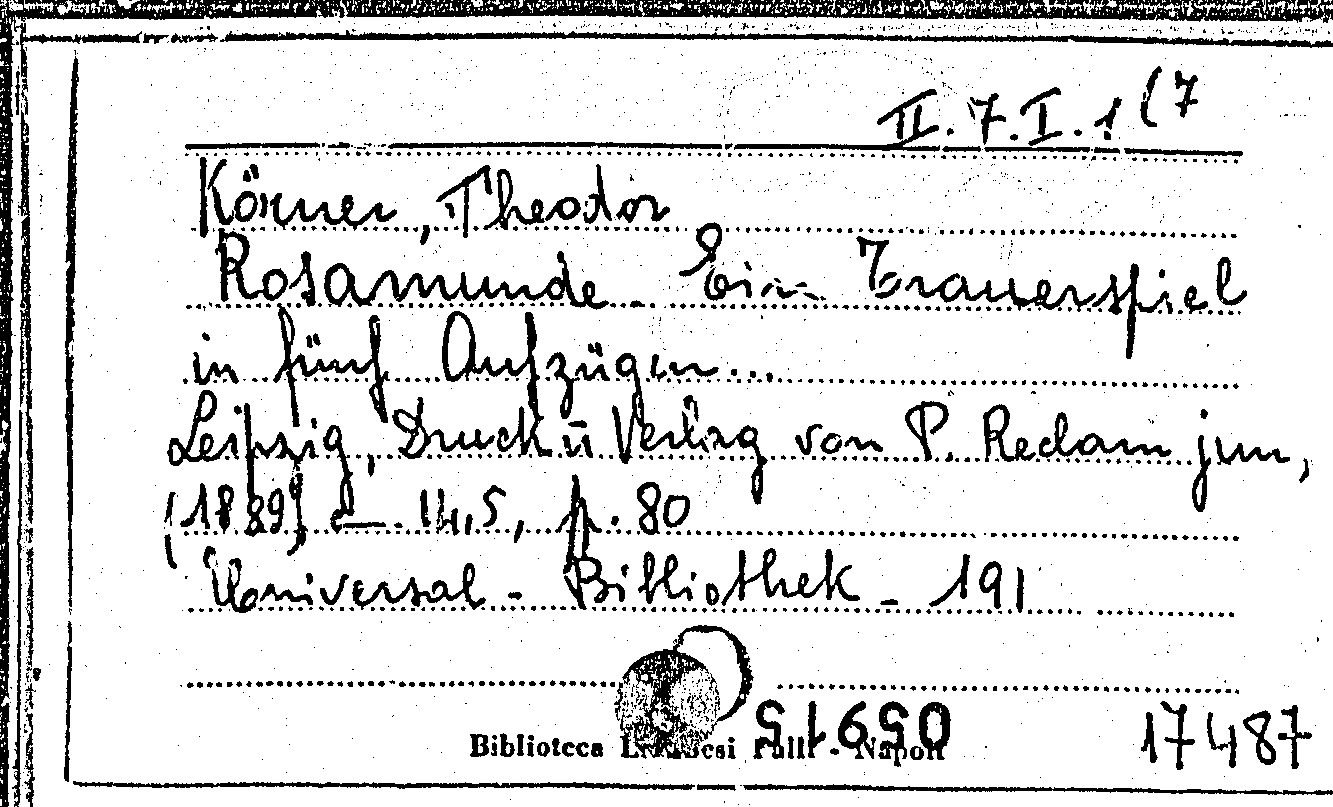 II. 7. I. 1 (7
Körner, Theodor
Rosamunde. Ein Trauerspiel
in fünf Aufzügen...
Leipzig, Druck u Verlag von P. Reclam jun,
(1889) 14,5, p. 80
Universal - Bibliothek - 191
Biblioteca Palli - Napoli
17487